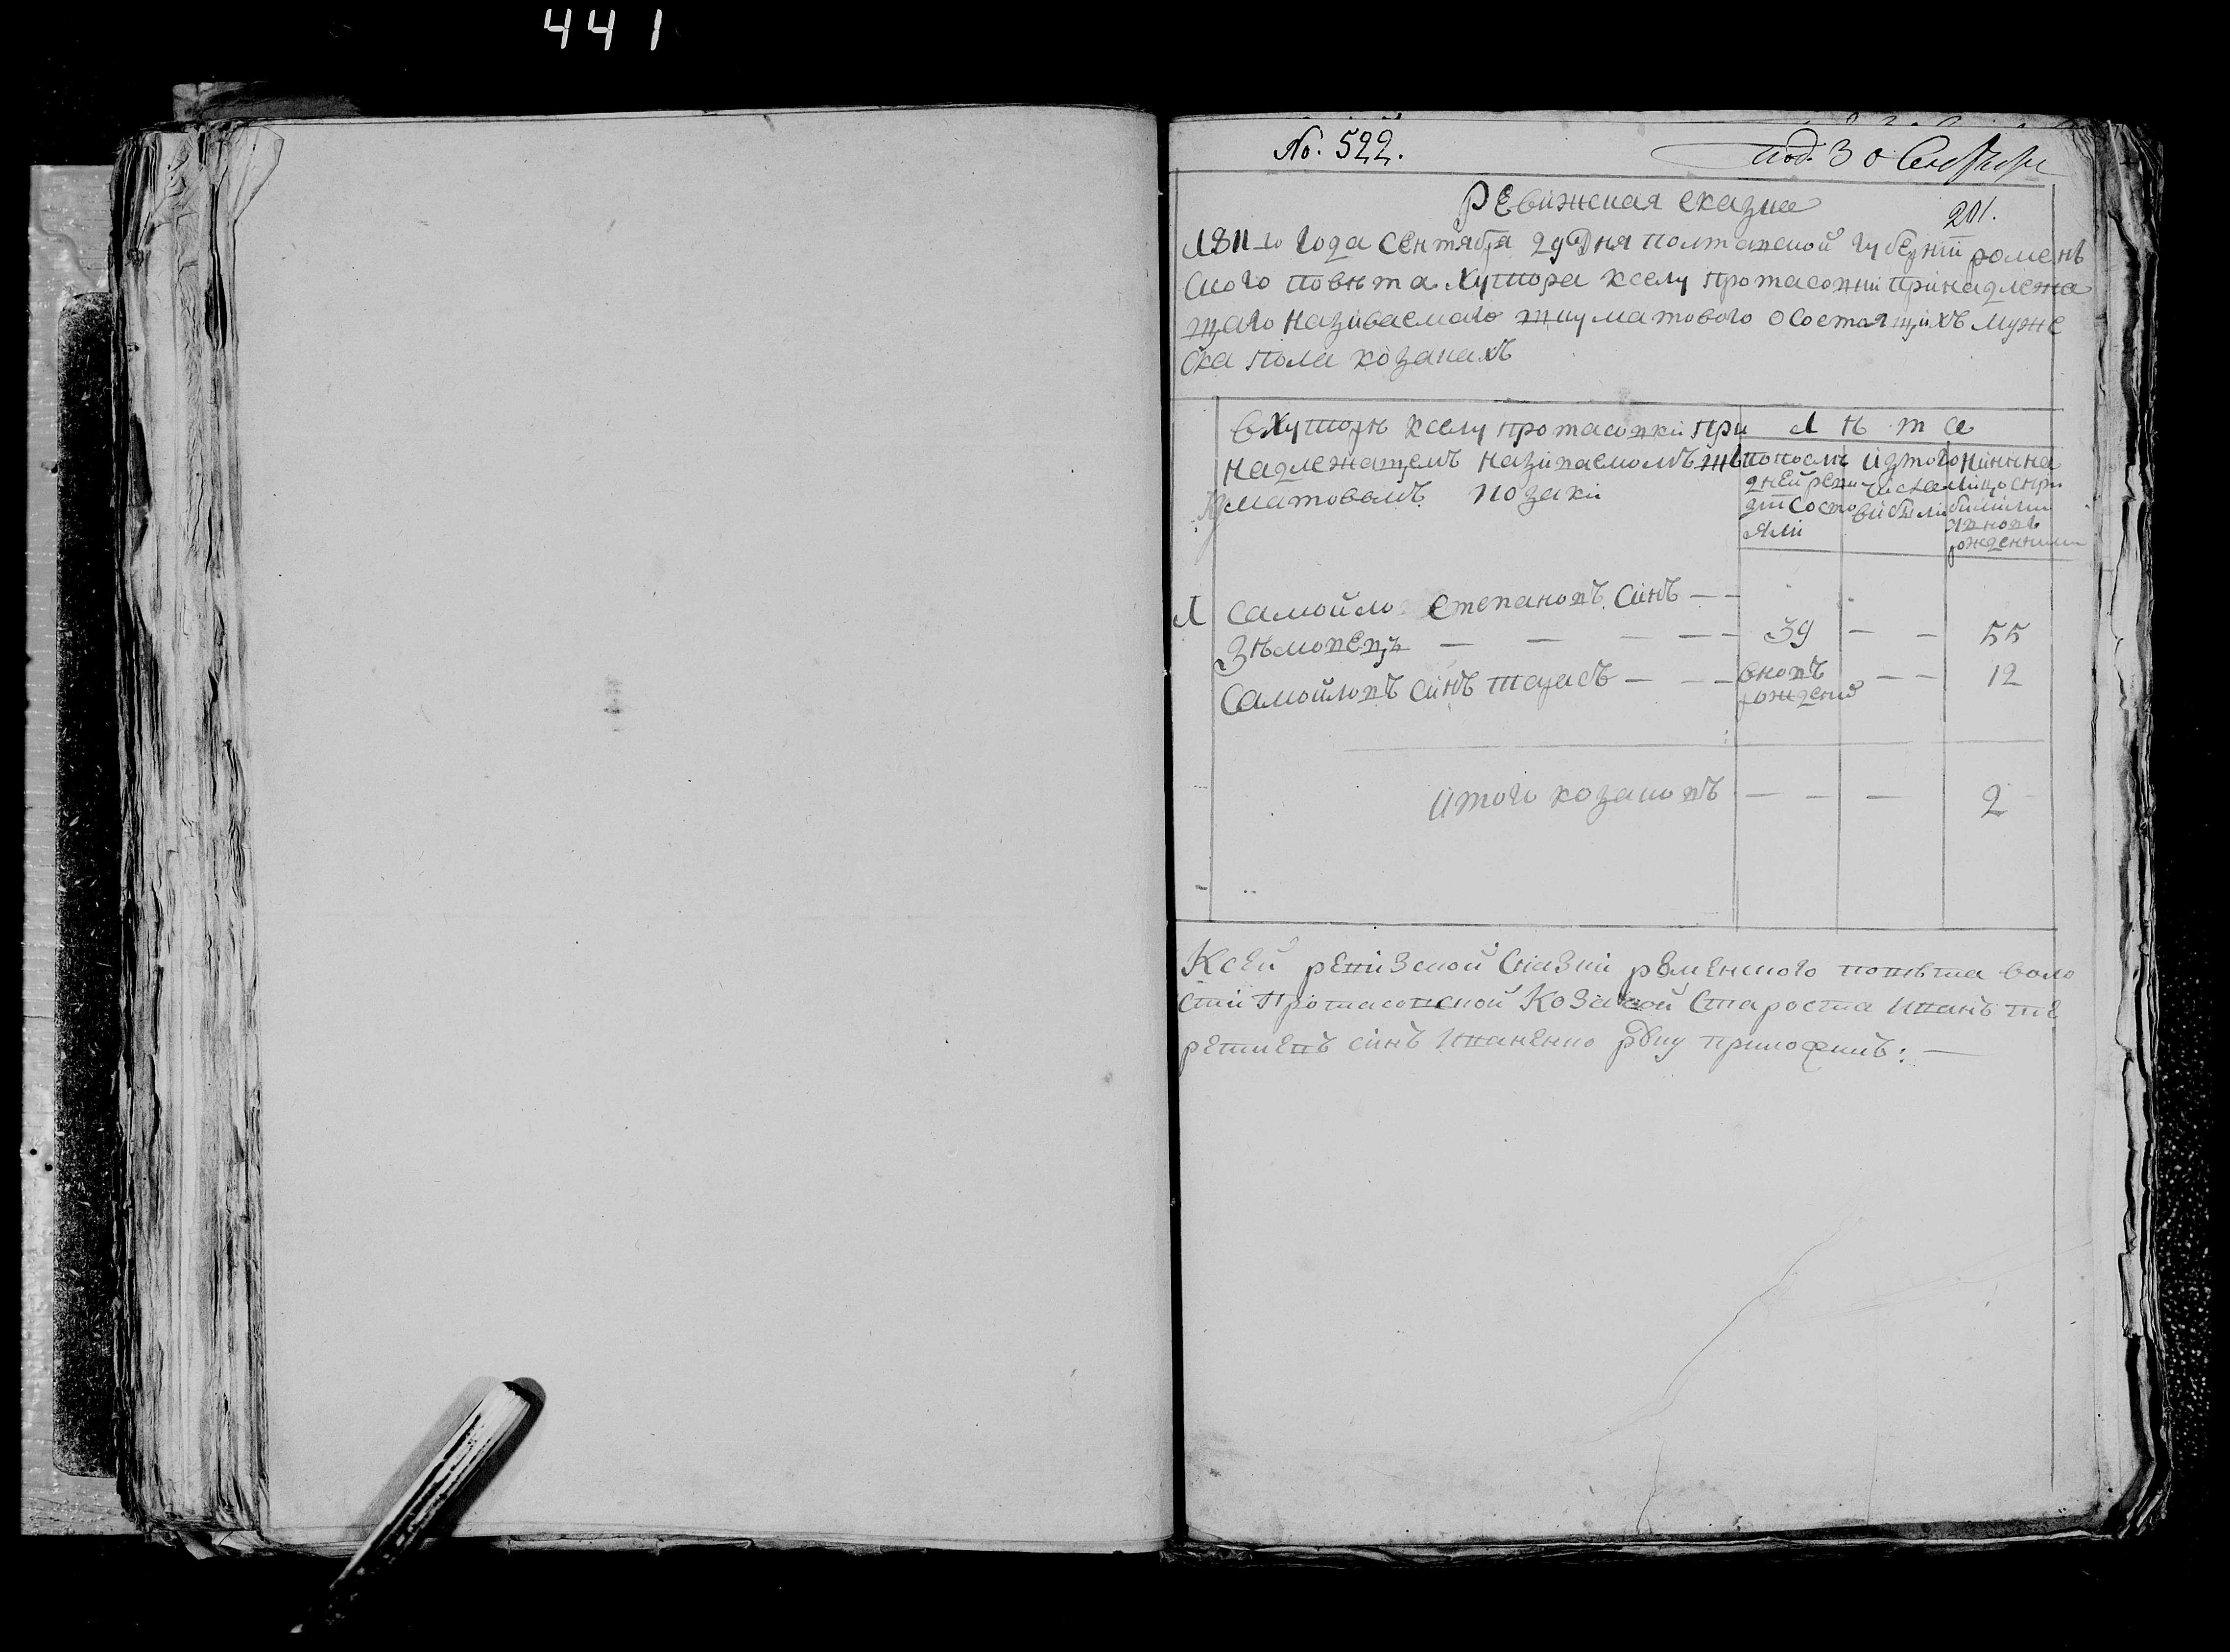 441
No. 522.
под. 30 Сентября
Ревижская сказка
201.
1811-го года сентября 29 Дня полтавской губернїи роменъ
ского повѣта хутора кселу протасовки принадлежа
щаго називаемаго шкуматового осостоящихъ муже
ска пола козакахъ
вхуторѣ кселу протасовки при
надлежащемъ називаемомъ
матовомъ козаки
Лѣта
попослѣ
дней реви
зїи состо
яли
изтого
числа
вибили
нинѣ на
лицо спри
билими
ивновь
рожденними
1 Самойло Степановъ синъ — —
Зѣмовецъ — — — — — 39 — — 55
Самойловъ синъ тарасъ — — — вновъ рожденъ — — 12
итого козаковъ — — — 2
Ксей ревизской сказки роменского повѣта воло
сти Протасовской Козачой Староста Иванъ те
решиевъ синъ Иваненко руку приложилъ: —